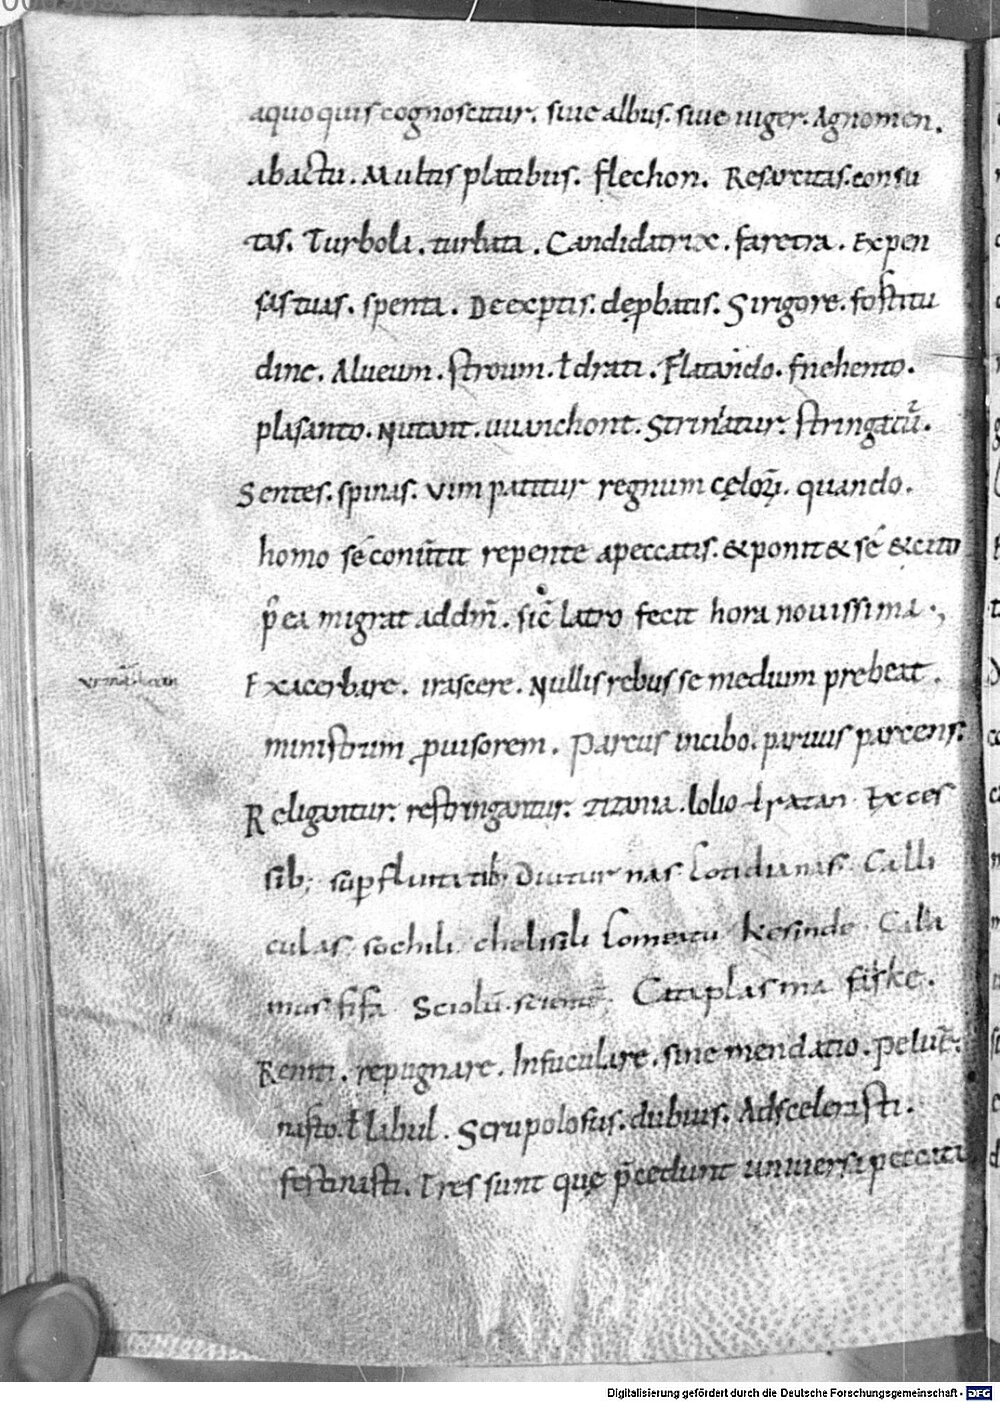 aquo quis cognoscitur. siue albus. siue niger. Agnomen.
abactu. Multis platibus. flechon. Resarcitas. consu
tas. Turboli. turbata. Candidatrix. faretra. Expen
sas tuas. spenta. Deexptis. dep̱batis. Sirigore. fostitu
dine. Alueum. stroum. ł drati. Flatando. fnehento.
plasanto. Nutant. uuanchont. Strinatur. stringatur̄.
Sentes. spinas. Vim patitur regnum cęlorꝝ. quando.
homo sé conūtit repente apeccatis. & ponit & sé & cito
p̄ ea migrat addm̄. sic̄ latro fecit hora nouissima.,
Exacerbare. irascere. Nullis rebus se medium prebeat.
ministrum ꝓuisorem. Parcus incibo. paruus parcens.
Religantur. restringantur. zizania. lolio ł ratan Exces
sib; supfluitatib; Diuturnas Cotidianas Calli
culas sochili chelisili Comeatu kesinde Cala
mus fifa Sciolū. Cataplasma fiske.
Reniti. repugnare. Infuculare. sine mendatio. Peluē.
nasto. ł labul. Scrupolosus. dubius. Adscelerasti.
festinasti. Tres sunt quę p̄cedunt uniuersa peccata